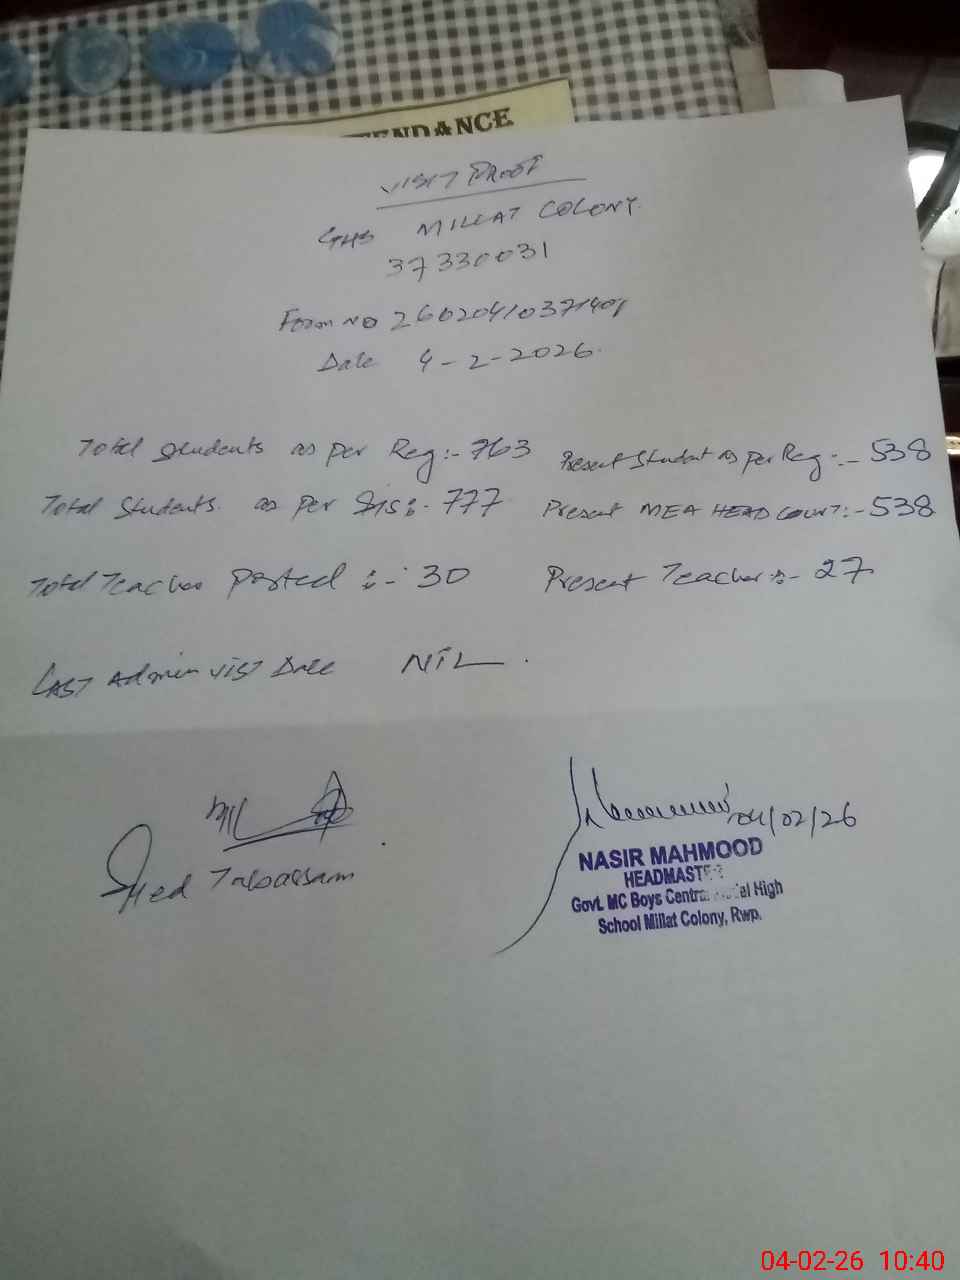 TENDANCE
VISIT PROOF
GHS MILLAT COLONY.
37330031
Form no 26020410371401
Date 4-2-2026.
Total Students as per Reg:- 763 Present Student as per Reg:- 538
Total Students as per Sis:- 777 Present MEA HEAD COUNT:- 538
Total Teacher posted :- 30 Present Teacher :- 27
LAST Admin VIST Date NIL.
04/02/26
Syed Tabassam
NASIR MAHMOOD
HEADMASTER
Govt. MC Boys Central Model High
School Millat Colony, Rwp.
04-02-26 10:40